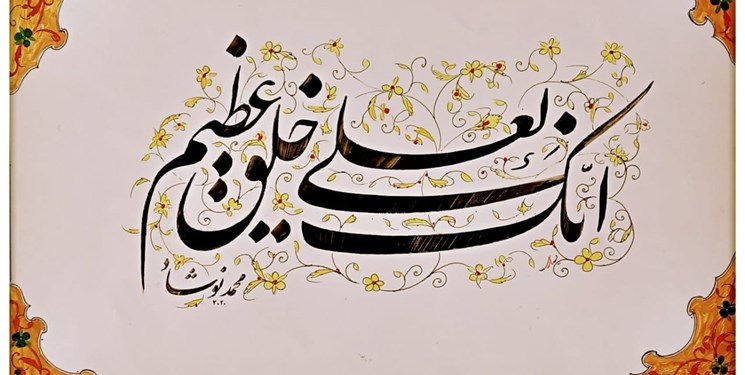 انّک لعلی خلق عظیم
محمد نوشاد
۲۰۲۰